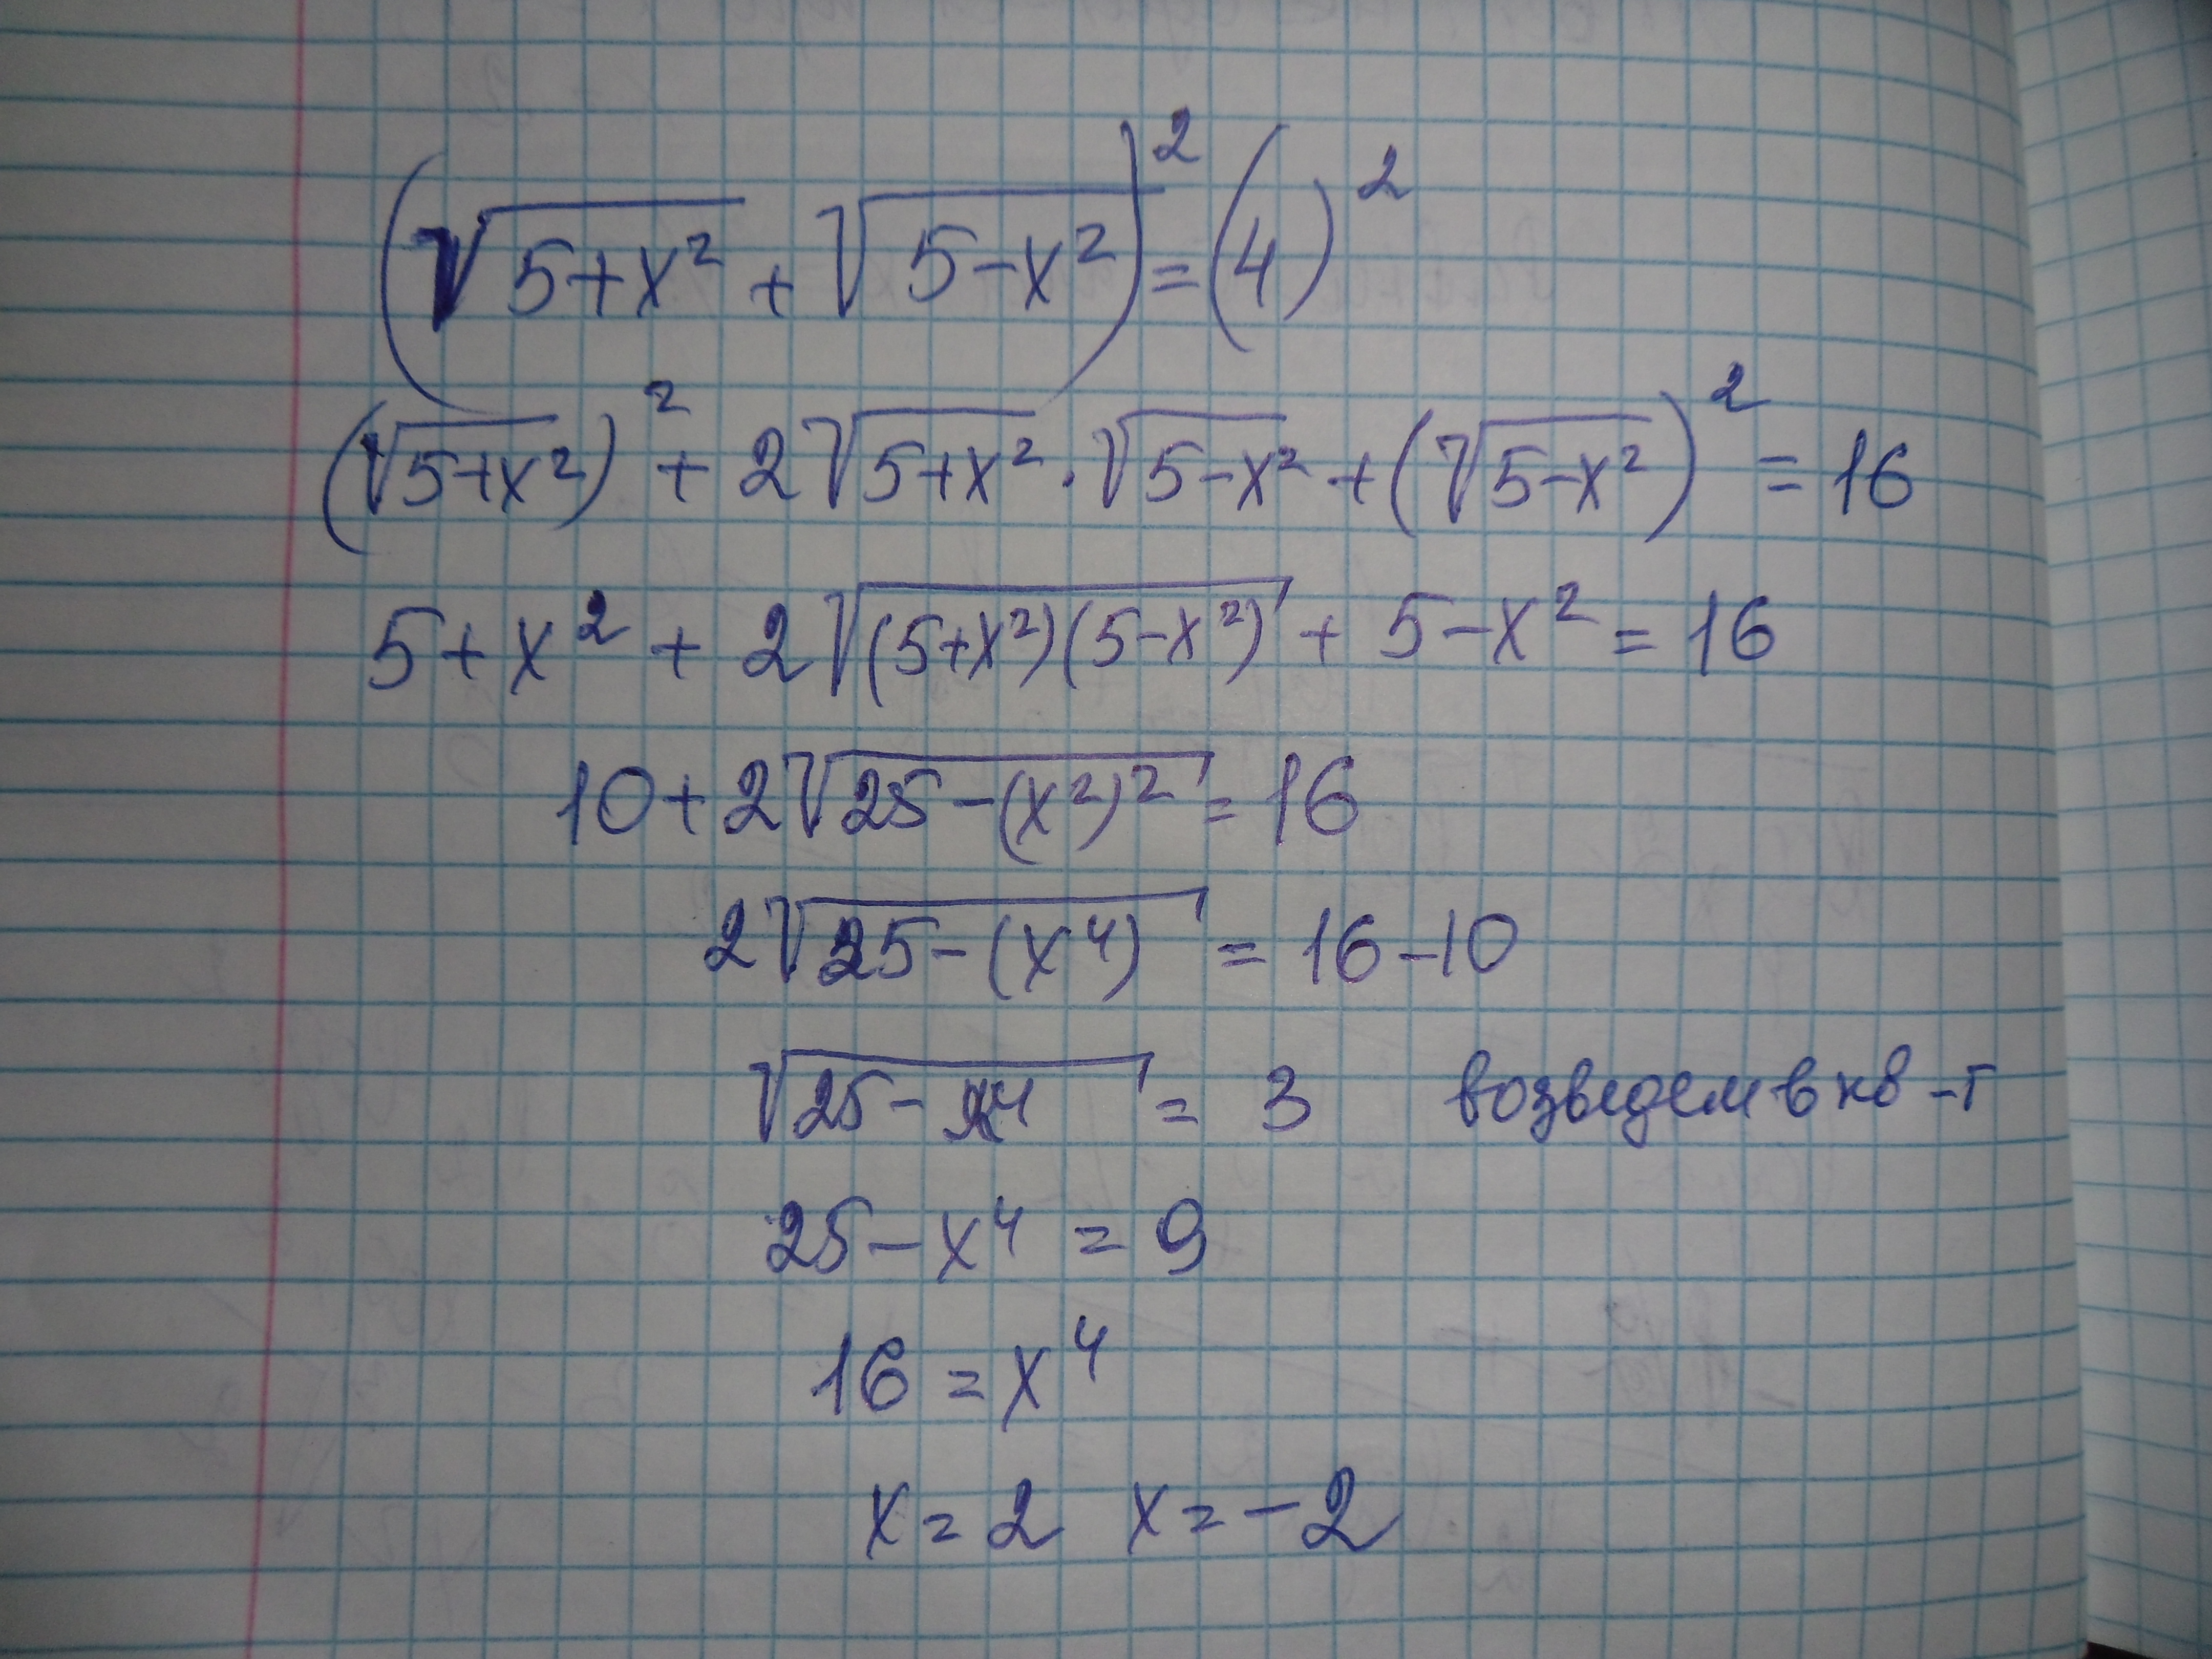 (√5+x²+ √5-x²)² = (4)²
(√5+x²)² + 2√5+x² · √5-x² + (√5-x²)² = 16
5+x² + 2√(5+x²)(5-x²) + 5-x² = 16
10+2√25-(x²)² = 16
2√25-(x⁴) = 16-10
√25-x⁴ = 3 возведем в кв-т
25-x⁴ = 9
16 = x⁴
x = 2 x = -2